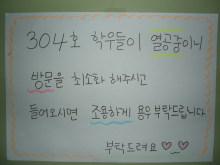 304호 학우들이 열공중이니
방문을 최소화 해주시고
들어오시면 조용하게 용무 부탁드립니다
부탁드려요 ♡_♡